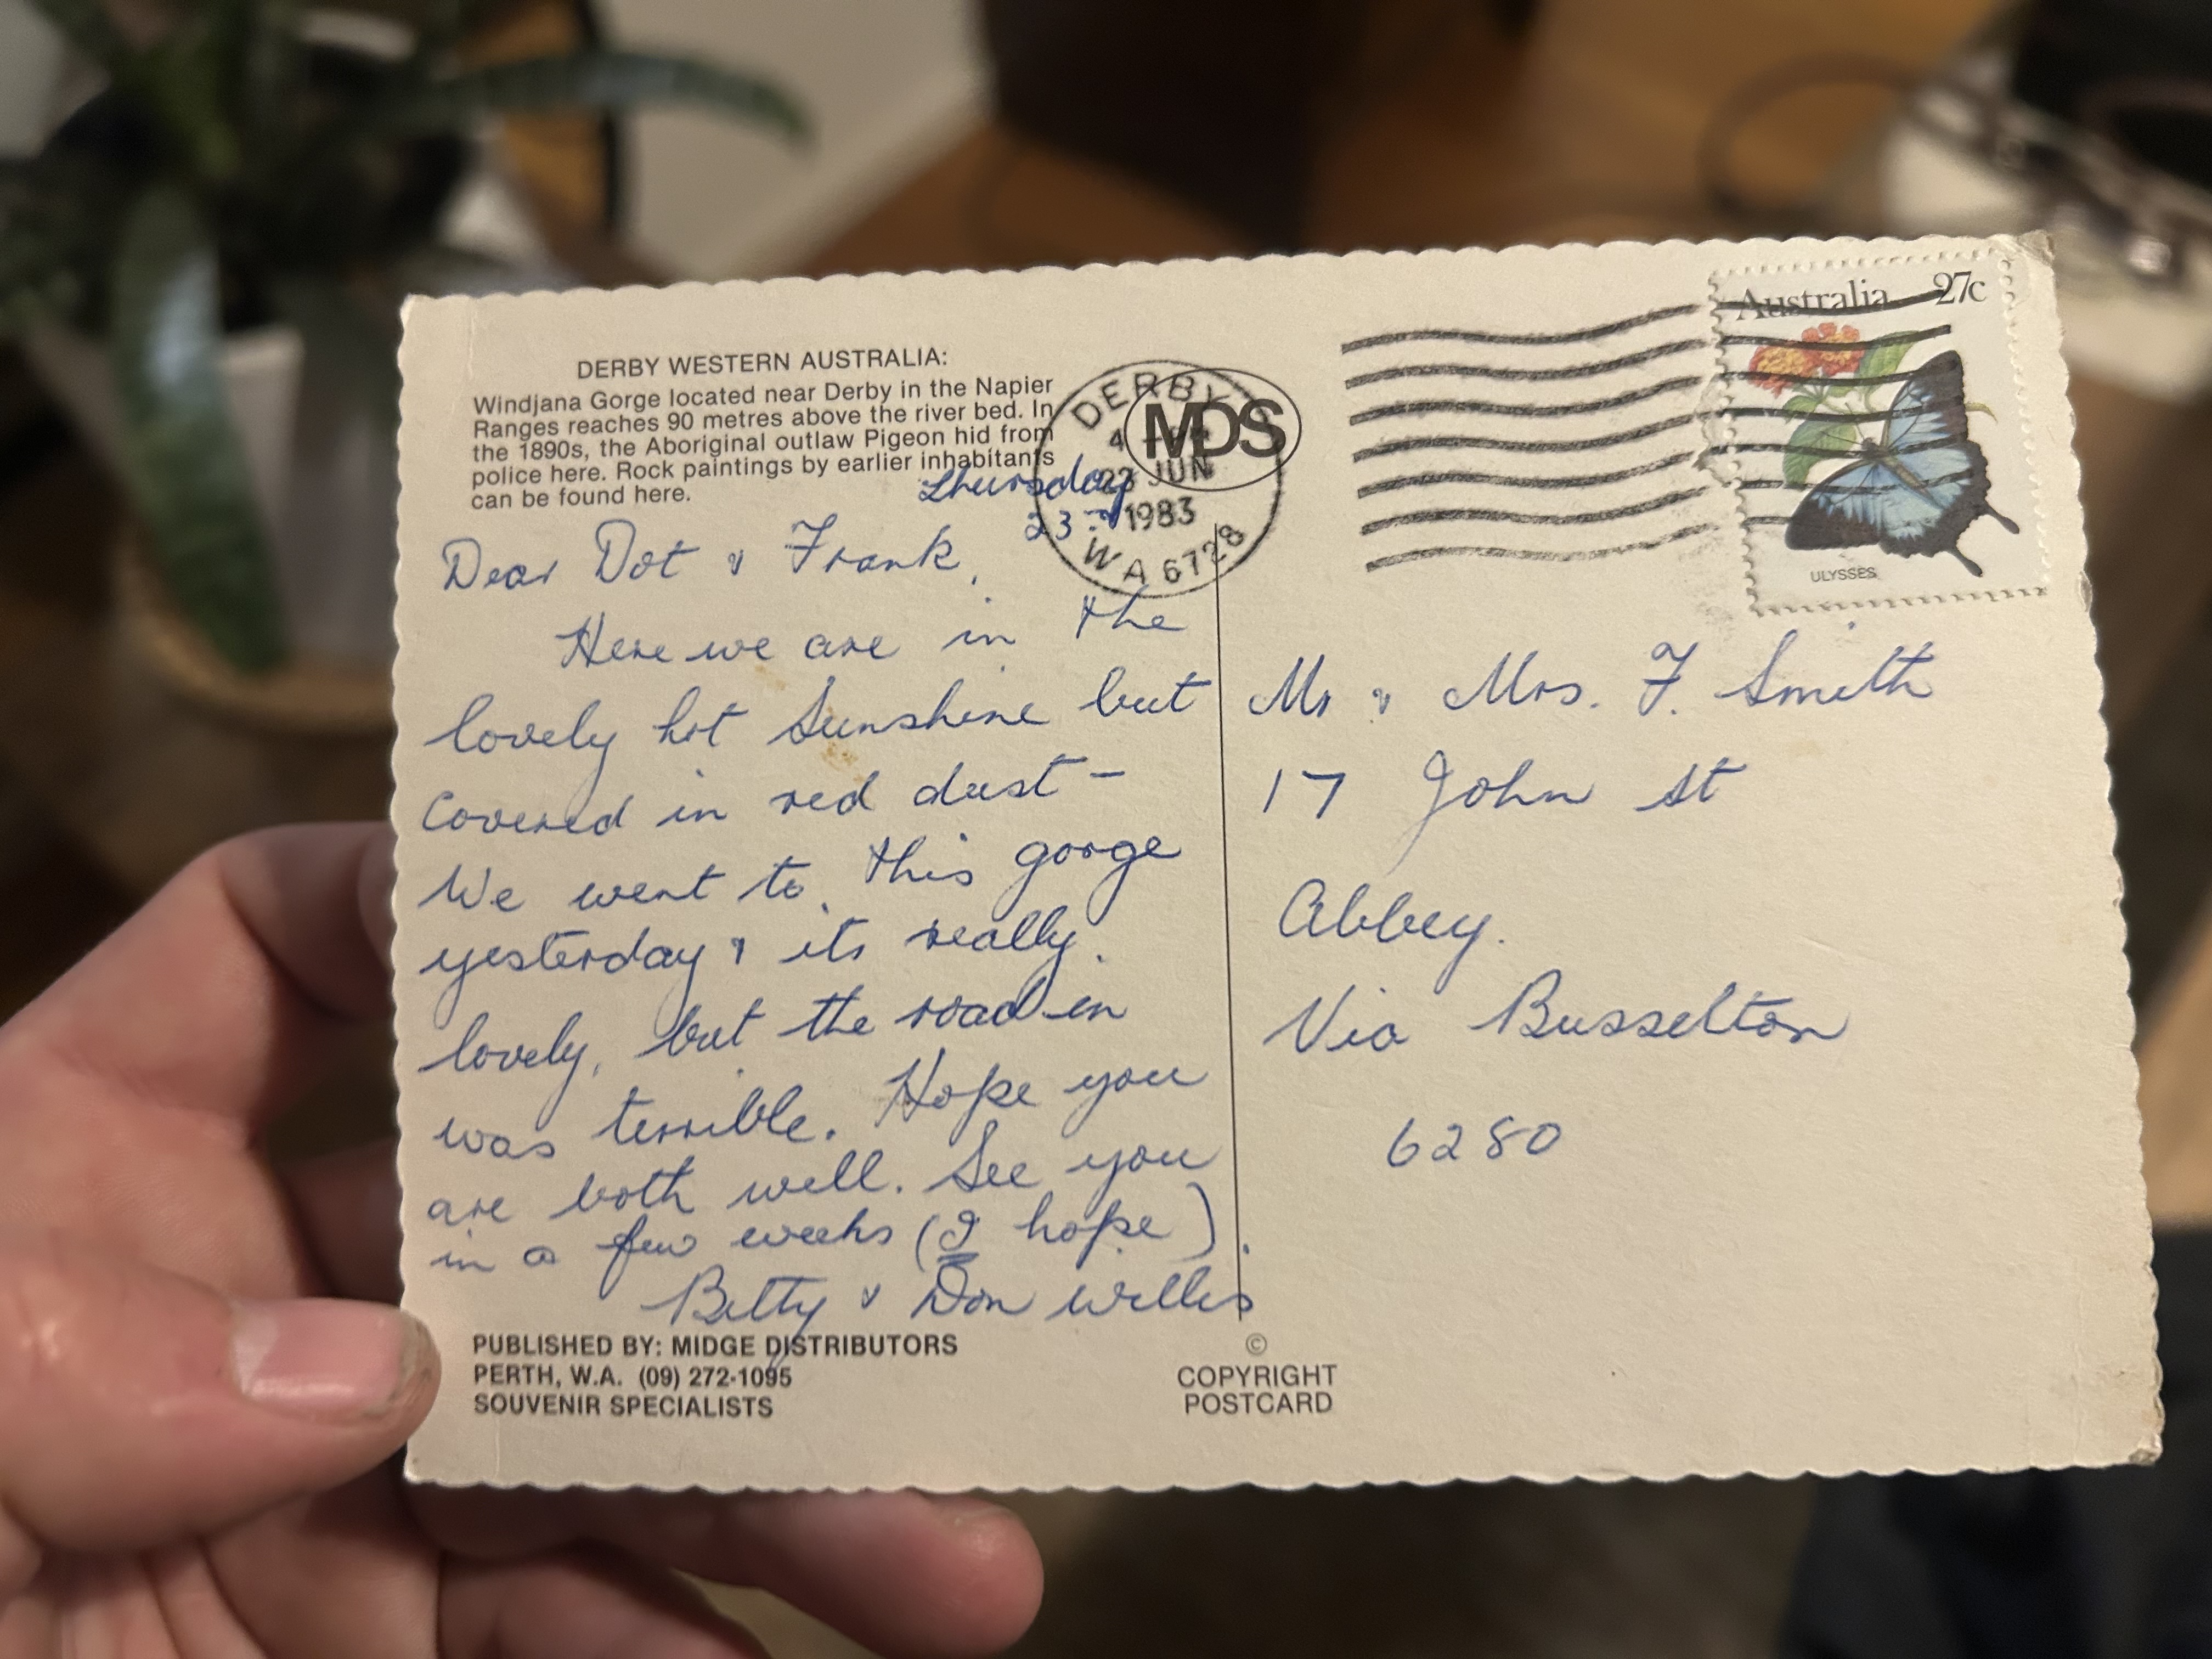 DERBY WESTERN AUSTRALIA:
Windjana Gorge located near Derby in the Napier
Ranges reaches 90 metres above the river bed. In
the 1890s, the Aboriginal outlaw Pigeon hid from
police here. Rock paintings by earlier inhabitants
can be found here.
Thursday
23rd
Dear Dot & Frank,
Here we are in the
lovely hot Sunshine but
covered in red dust –
We went to this gorge
yesterday & its really
lovely, but the road in
was terrible. Hope you
are both well. See you
in a few weeks (I hope).
Betty & Don Willis
PUBLISHED BY: MIDGE DISTRIBUTORS
PERTH, W.A. (09) 272-1095
SOUVENIR SPECIALISTS
DERBY
MDS
4
23 JUN
1983
WA 6728
Australia 27c
ULYSSES
Mr & Mrs. F. Smith
17 John St
Abbey.
Via Busselton
6280
©
COPYRIGHT
POSTCARD